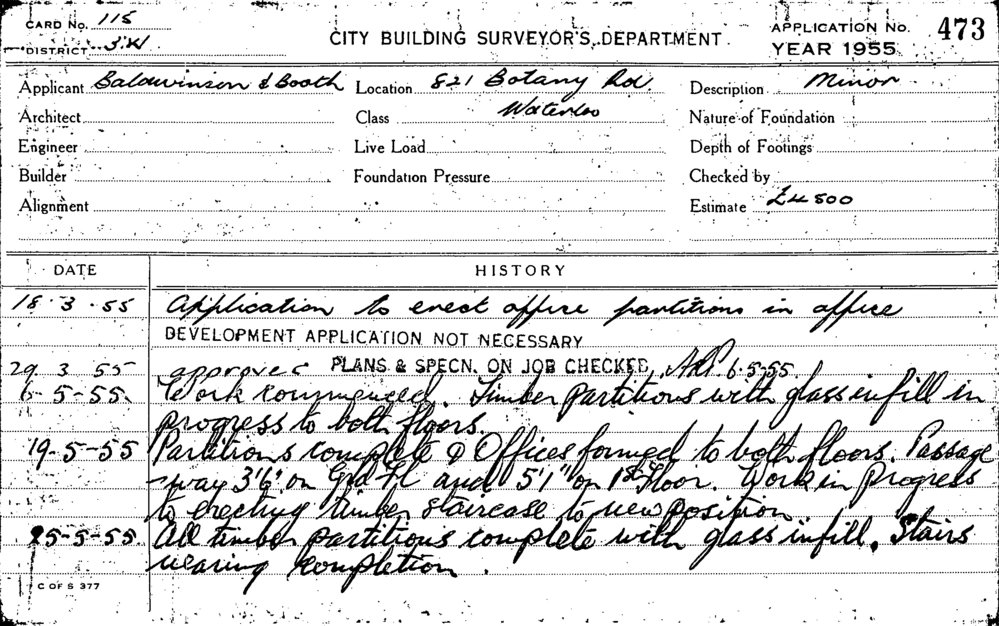 CARD No. 115
DISTRICT S.W
CITY BUILDING SURVEYOR'S DEPARTMENT
APPLICATION No. 473
YEAR 1955
Applicant Baldwinson & Booth Location 821 Botany Rd. Description Minor
Architect Class Waterloo Nature of Foundation
Engineer Live Load Depth of Footings
Builder Foundation Pressure Checked by
Alignment Estimate £4500
DATE HISTORY
18.3.55 Application to erect office partitions in office
DEVELOPMENT APPLICATION NOT NECESSARY
29.3.55 approved PLANS & SPECN. ON JOB CHECKED, 6.5.55.
6-5-55. Work commenced. Timber partitions with glass infill in
progress to both floors.
19-5-55 Partitions complete & Offices formed to both floors. Passage
-way 3'6" on Grd Fl and 5'1" on 1st Floor. Work in Progress
to erecting timber staircase to new position.
25-5-55. All timber partitions complete with glass infill. Stairs
nearing completion.
C OF S 377